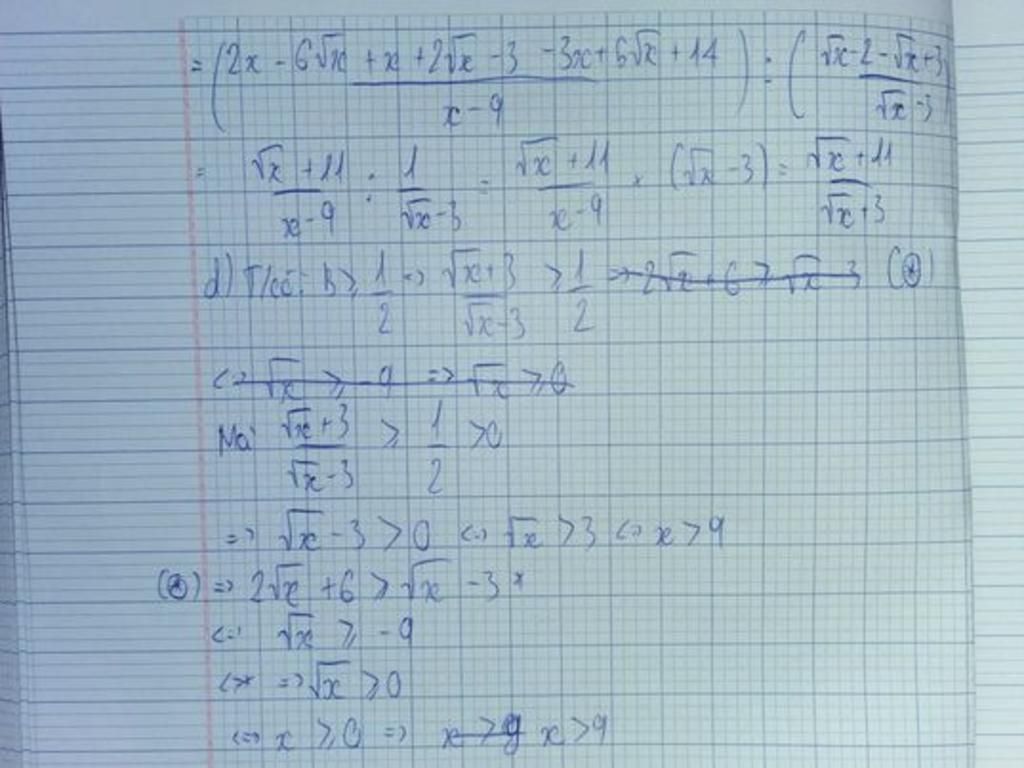 = (2x - 6√x + x + 2√x - 3 - 3x + 6√x + 14 / x - 9) : (√x - 2 - √x + 3 / √x - 3)
= √x + 11 / x - 9 : 1 / √x - 3 = √x + 11 / x - 9 . (√x - 3) = √x + 11 / √x + 3
d) B ≥ 1/2 => √x + 3 / √x - 3 ≥ 1/2 => 2√x + 6 ≥ √x - 3 (*)
<=> √x ≥ -9 => √x ≥ 0
Mà √x + 3 / √x - 3 ≥ 1/2 > 0
=> √x - 3 > 0 <=> √x > 3 <=> x > 9
(*) => 2√x + 6 ≥ √x - 3
<=> √x ≥ -9
=> √x ≥ 0
<=> x ≥ 0 => x > 9 x > 9